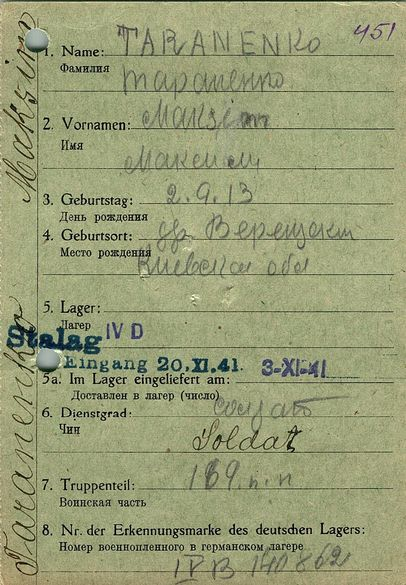 451
1. Name: TARANENKO
Фамилия Тараненко
2. Vornamen: Maksim
Имя
Максим
3. Geburtstag: 2.9.13
День рождения
4. Geburtsort: др. Верещаки
Место рождения Киевская обл
5. Lager:
Лагер IV D
Stalag
Eingang 20. XI. 41. 3-XI-41
5a. Im Lager eingeliefert am:
Доставлен в лагер (число)
6. Dienstgrad: солдат
Чин Soldat
7. Truppenteil: 169 п.п
Воинская часть
8. Nr. der Erkennungsmarke des deutschen Lagers:
Номер военнопленного в германском лагере
IV B 140862
Taranenko Maksim